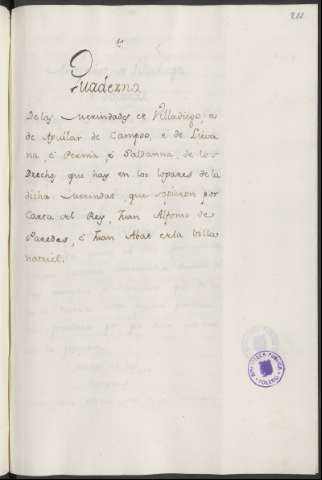 Quaderno
De las Merindades de Villadiego, e
de Aguilar de Campoo, e de Lieva
na, é Pernia, é Saldanna, de los
Drechos que hay en los logares de la
dicha Merindat, que sopieron por
Carta del Rey, Juan Alfonso de
Paredes, é Juan Abat de la Villa
BIBLIOTECA PUBLICA
TOLEDO